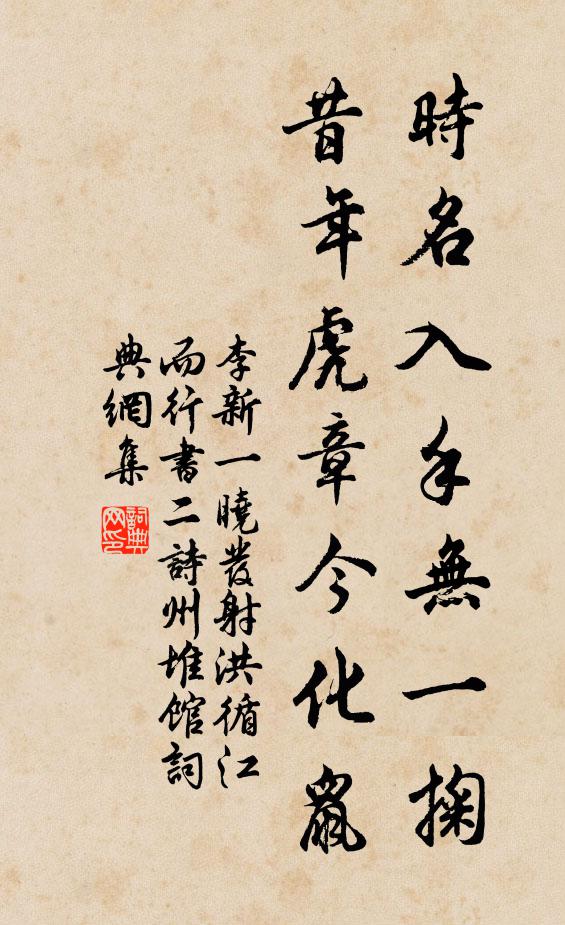 時名入手無一掬
昔年虎章今化鼠
李新一曉發射洪循江
而行書二詩州堆館詞
典網集
詞典網印